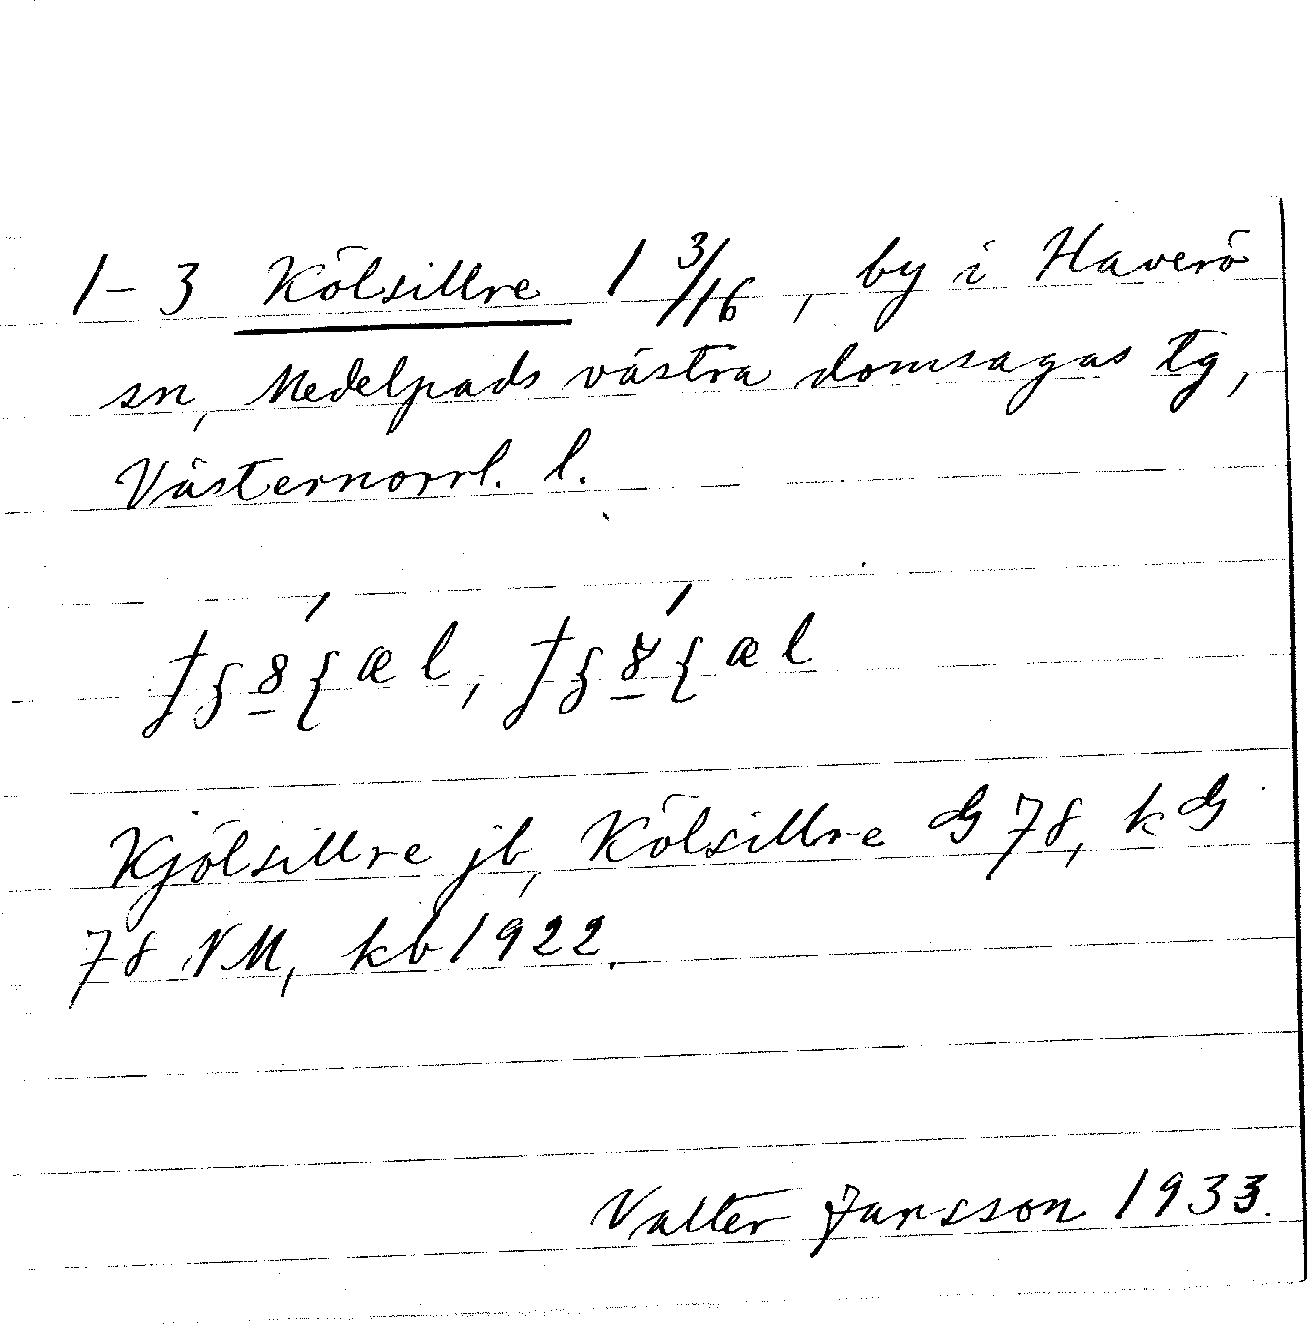 1-3 Kölsillre 1 3/16, by i Haverö
sn, Medelpads västra domsagas tg,
Västernorrl. l.
Kjölsillre jb, Kölsillre G 78, k G
78 NM, kb 1922.
Valter Jansson 1933.